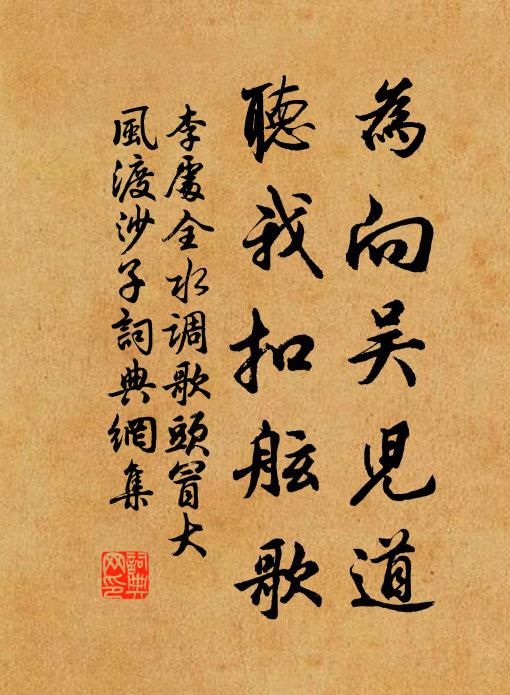 為向吴兒道
聽我扣舷歌
李處全水調歌頭冒大
風渡沙子詞典網集
詞典
网印